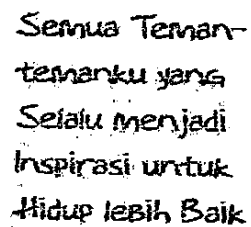 Semua Teman-
temanku yang
Selalu menjadi
Inspirasi untuk
Hidup lebih Baik